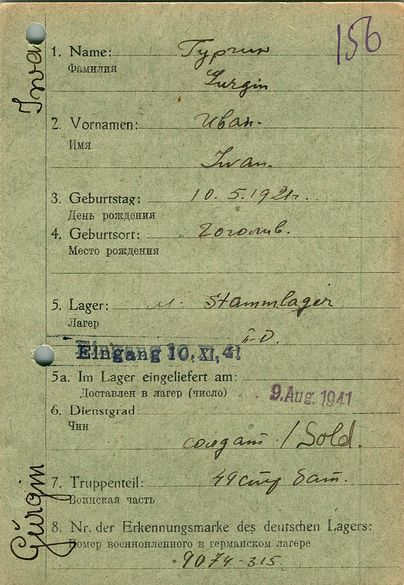 Iwa
156
1. Name: Гургин
Фамилия
Gurgin
2. Vornamen: Иван.
Имя
Iwan.
3. Geburtstag: 10.5.1921г.
День рождения
4. Geburtsort: Гоголив.
Место рождения
5. Lager: М. Stammlager
Лагер
II-D.
Eingang 10. XI. 41
5a. Im Lager eingeliefert am:
Доставлен в лагер (число)
9. Aug. 1941
6. Dienstgrad:
Чин
солдат / Sold.
7. Truppenteil: 49 стр бат.
Воинская часть
8. Nr. der Erkennungsmarke des deutschen Lagers:
Номер военнопленного в германском лагере
9074-315.
Gurgin